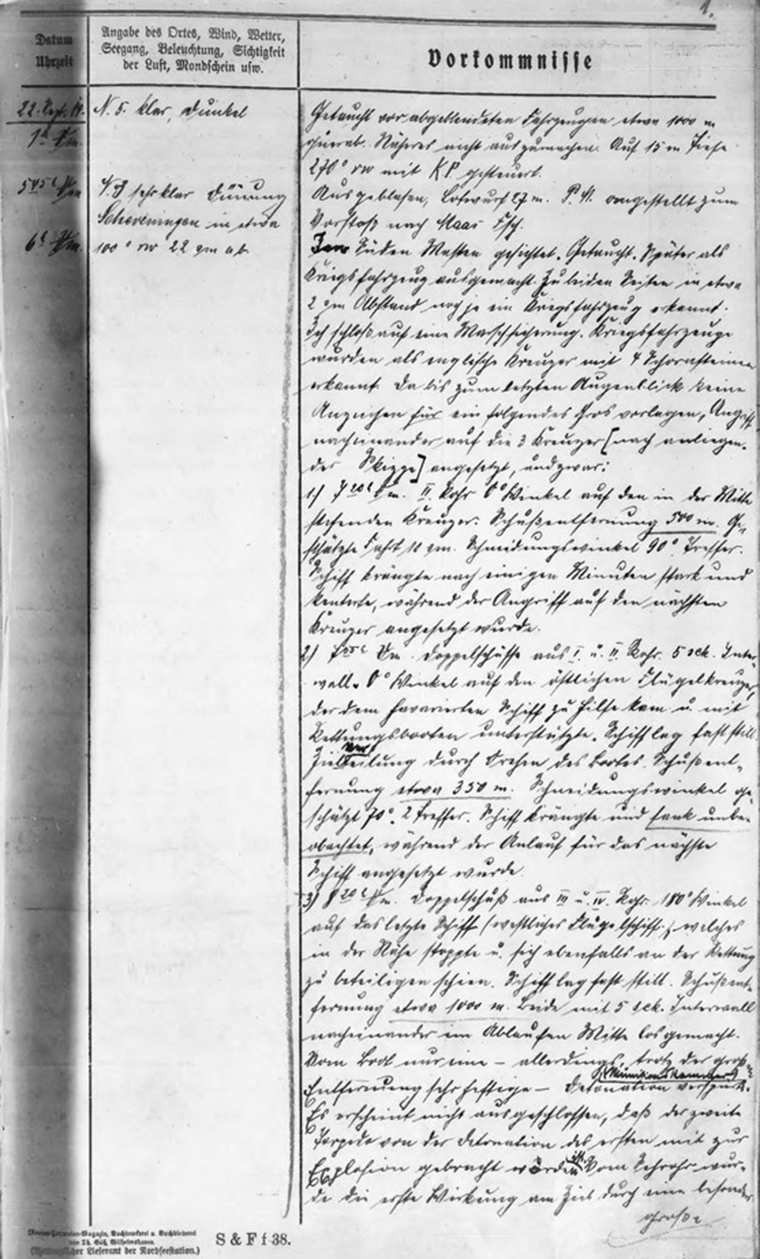 1.
Datum
Uhrzeit
Angabe des Ortes, Wind, Wetter,
Seegang, Beleuchtung, Sichtigkeit
der Luft, Mondschein usw.
Vorkommnisse
22. Sept. 14.
N. 5. klar, dunkel
Getaucht vor abgeblendeten Fahrzeugen etwa 1000 m
querab. Näheres nicht auszumachen. Auf 15 m Tiefe
270° rw mit K.P. gesteuert.
5 45 Vm
N. 3 sehr klar Dünung
Scheveningen in etwa
100° rw 22 sm ab
Ausgeblasen, Lotwurf 27 m. P. M. angestellt zum
Vorstoß nach Maas Fsch.
6 Vm.
Im Süden Masten gesichtet. Getaucht. Später als
Kriegsfahrzeug ausgemacht. Zu beiden Seiten in etwa
2 sm Abstand noch je ein Kriegsfahrzeug erkannt.
Ich schloß auf eine Marschsicherung. Kriegsfahrzeuge
wurden als englische Kreuzer mit 4 Schornsteinen
erkannt. Da bis zum letzten Augenblick keine
Anzeichen für ein folgendes Gros vorlagen, Angriff
nacheinander auf die 3 Kreuzer [nach anliegen-
der Skizze] angesetzt, und zwar:
1.) 7 20 Vm. II. Rohr 0° Winkel auf den in der Mitte
stehenden Kreuzer. Schußentfernung 500 m. Ge-
schätzte Fahrt 10 sm. Schneidungswinkel 90° Treffer.
Schiff krängte nach einigen Minuten stark und
kenterte, während der Angriff auf den nächsten
Kreuzer angesetzt wurde.
2.) Vm. Doppelschüsse aus I. u. II. Rohr. 5 sek. Inter-
wall. 0° Winkel auf den östlichen Flügelkreuzer,
der dem havarierten Schiff zu Hilfe kam u. mit
Rettungsbooten unterstützte. Schiff lag fast still.
Zielverteilung durch Drehen des Bootes. Schußent-
fernung etwa 350 m. Schneidungswinkel ge-
schätzt 70°. 2 Treffer. Schiff krängte und sank unbe-
obachtet, während der Anlauf für das nächste
Schiff angesetzt wurde.
3.) 8 20 Vm. Doppelschuß aus III u. IV. Rohr 180° Winkel
auf das letzte Schiff (westliches Flügelschiff), welches
in der Nähe stoppte u. sich ebenfalls an der Rettung
zu beteiligen schien. Schiff lag fast still. Schußent-
fernung etwa 1000 m. Beide mit 5 sek. Interwall
nacheinander im Ablaufen Mitte losgemacht.
Vom Boot nur eine – allerdings, trotz der großen
Entfernung sehr heftige – Detonation verspürt.
Es erscheint nicht ausgeschlossen, daß der zweite
Torpedo von der Detonation des ersten mit zur
Explosion gebracht worden ist. Vom Sehrohr wur-
de die erste Wirkung am Ziel durch eine besonders
große
S & F f 38.
(Alleiniger Lieferant der Nordseestation.)